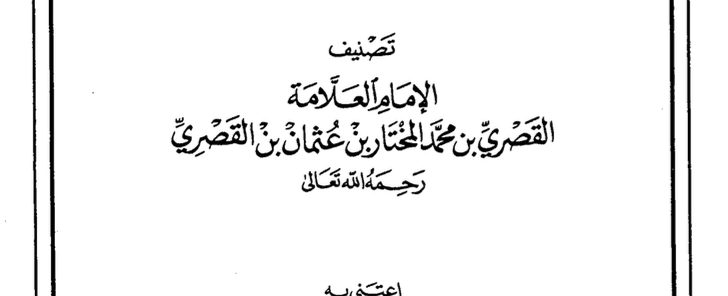 تَصْنِيف
الإمَامِ العَلَّامَة
القَصْرِيِّ بن محمَّد المخْتَار بنْ عُثمانْ بنْ القَصْرِيِّ
رَحِمَهُ الله تَعَالىٰ
اعتَنى به